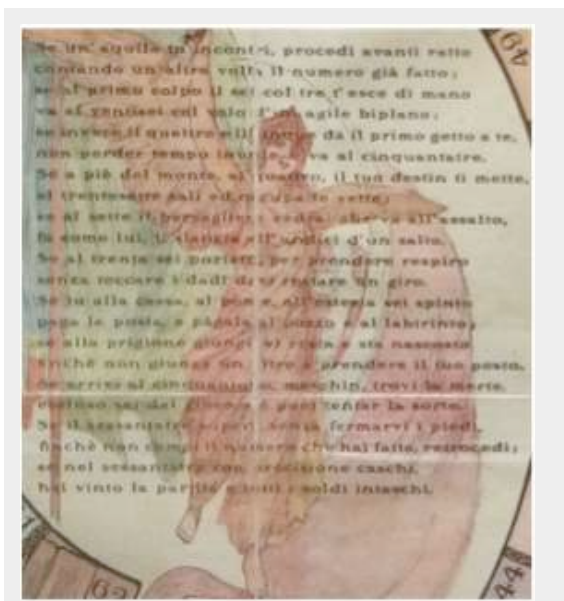 Se un'aquila tu incontri, procedi avanti ratto
contando un'altra volta il numero già fatto;
se al primo colpo il sei col tre t'esce di mano
va al ventisei col volo d'un agile biplano;
se invece il quattro e il cinque da il primo getto a te,
non perder tempo va al cinquantatre.
Se a piè del monte, al quattro, il tuo destin ti mette,
al trentasette sali ed le vette;
se al sette il bersagliere vedrai che va all'assalto,
fa come lui, ti slancia all'undici d'un salto.
Se al trenta sei per prendere respiro
senza toccare i dadi devi restare un giro.
Se tu alla cassa, al ponte, all'osteria sei spinto
paga la posta, e pàgala al pozzo e al labirinto;
se alla prigione giungi vi resta e sta nascosto
finchè non giunge un altro a prendere il tuo posto.
Se arrivi al cinquantotto, meschin, trovi la morte,
escluso sei dal e puoi tentar la sorte.
Se il sessantatre superi senza fermarvi i piedi,
finchè non compi il numero che hai fatto, retrocedi;
se nel sessantatre con precisione caschi,
hai vinto la partita e tutti i soldi intaschi.
64
62
44